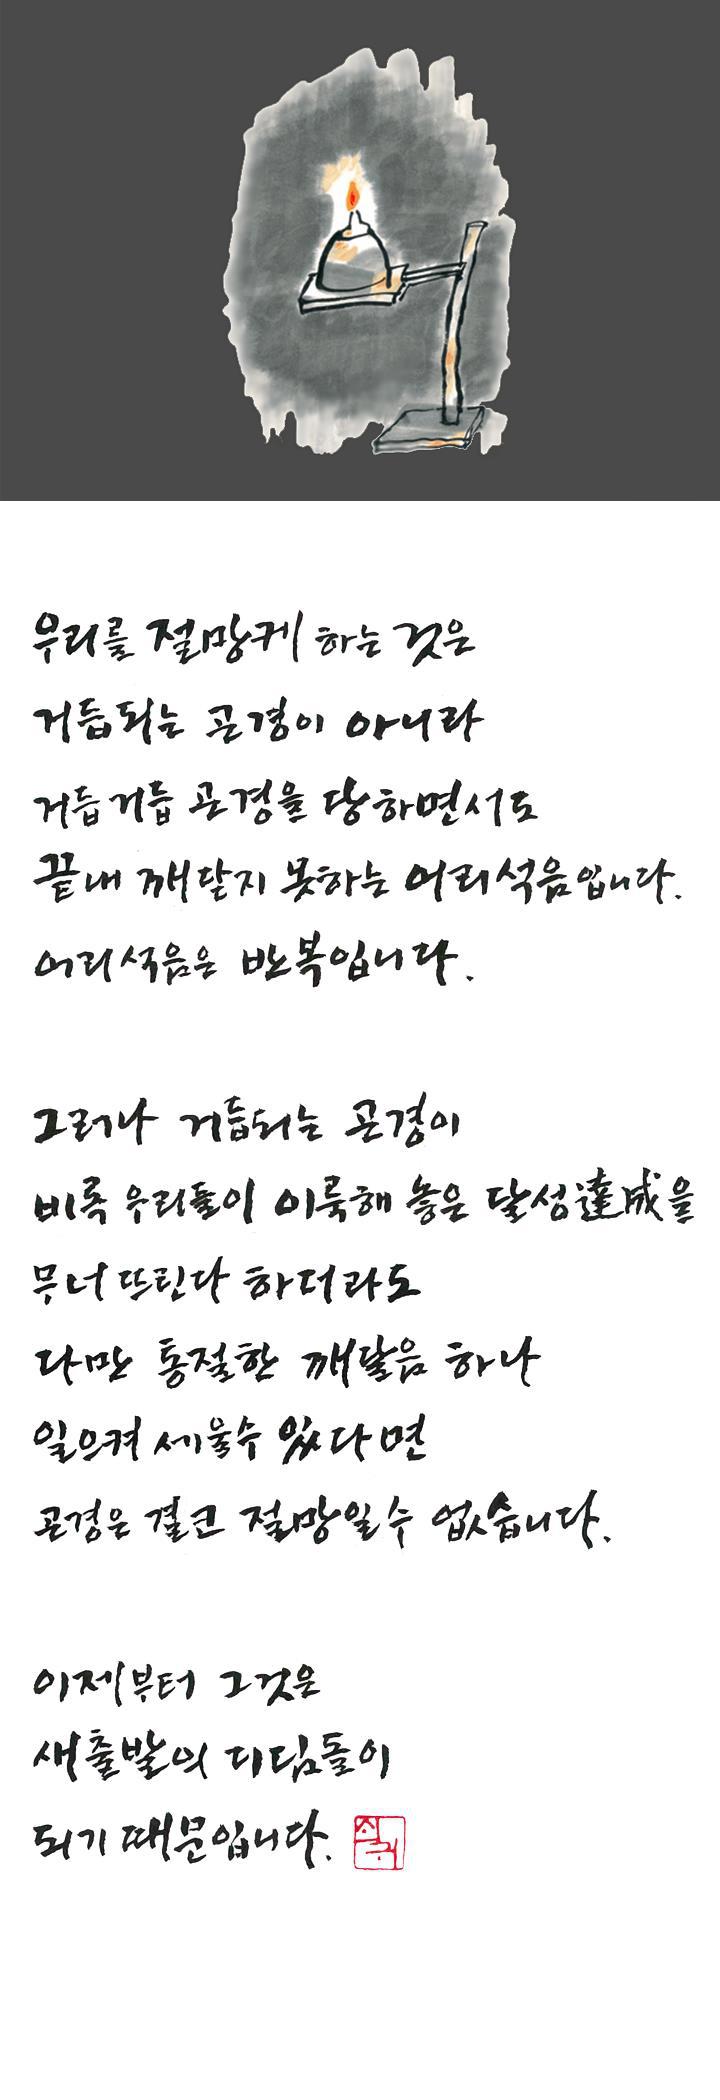 우리를 절망케 하는 것은
거듭되는 곤경이 아니라
거듭거듭 곤경을 당하면서도
끝내 깨닫지 못하는 어리석음입니다.
어리석음은 반복입니다.
그러나 거듭되는 곤경이
비록 우리들이 이룩해 놓은 달성達成을
무너뜨린다 하더라도
다만 통절한 깨달음 하나
일으켜 세울수 있다면
곤경은 결코 절망일 수 없습니다.
이제부터 그것은
새출발의 디딤돌이
되기 때문입니다.